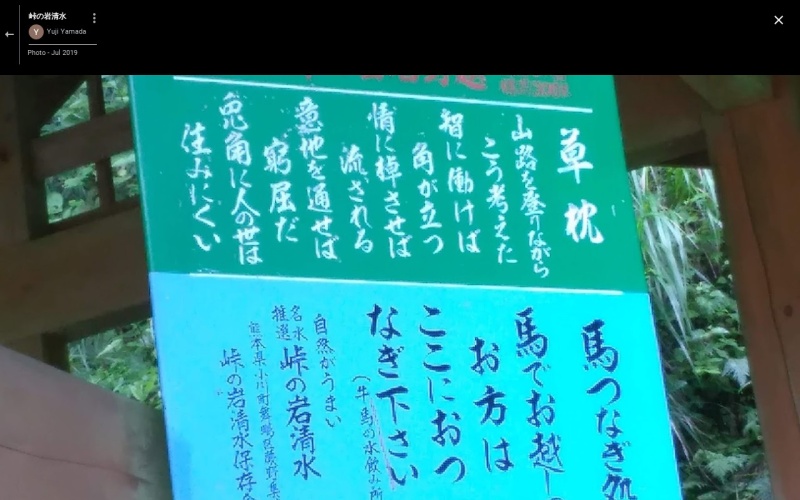 峠の岩清水
Yuji Yamada
Photo - Jul 2019
草枕
山路を登りながら
こう考えた
智に働けば
角が立つ
情に棹させば
流される
意地を通せば
窮屈だ
兎角に人の世は
住みにくい
馬つなぎ処
馬でお越し
お方は
ここにおつ
なぎ下さい
(牛馬の水飲み所
自然がうまい
名水
推選
峠の岩清水
熊本県小川町
峠の岩清水保存会